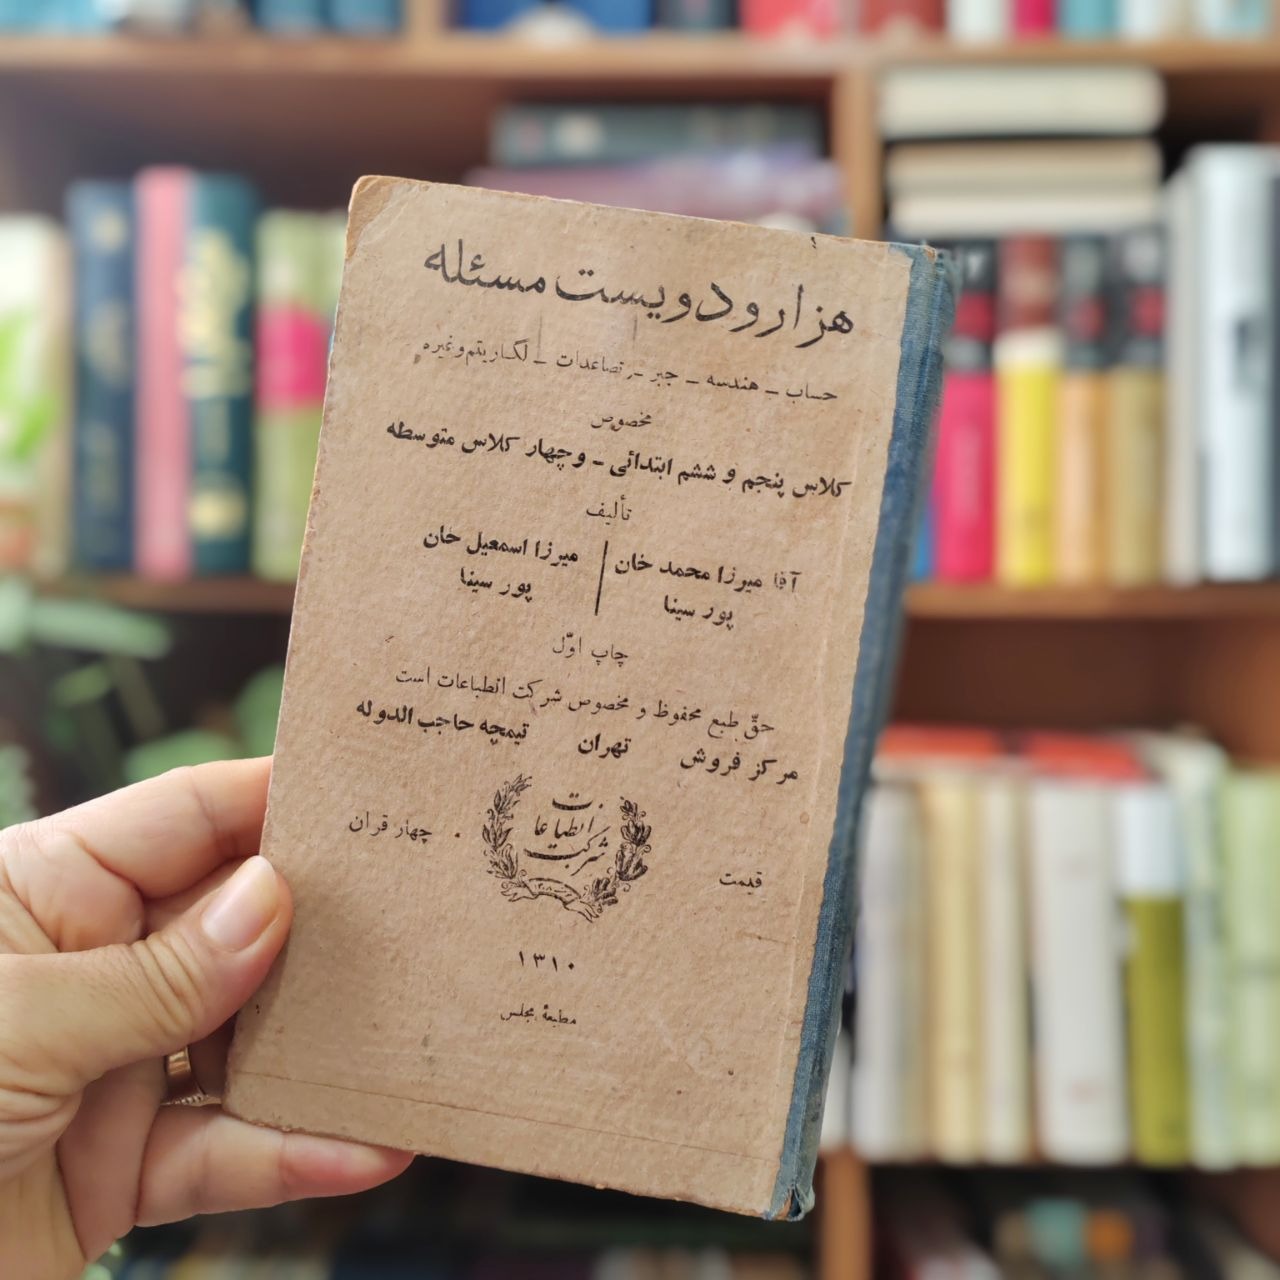 هزار و دویست مسئله
حساب ـ هندسه ـ جبر ـ تصاعدات ـ لگاریتم و غیره
مخصوص
کلاس پنجم و ششم ابتدائی ـ و چهار کلاس متوسطه
تألیف
آقا میرزا محمد خان | میرزا اسمعیل خان
پور سینا | پور سینا
چاپ اوّل
حقّ طبع محفوظ و مخصوص شرکت انطباعات است
مرکز فروش تهران تیمچه حاجب الدوله
شرکت انطباعات
قیمت چهار قران
۱۳۱۰
مطبعهٔ مجلس